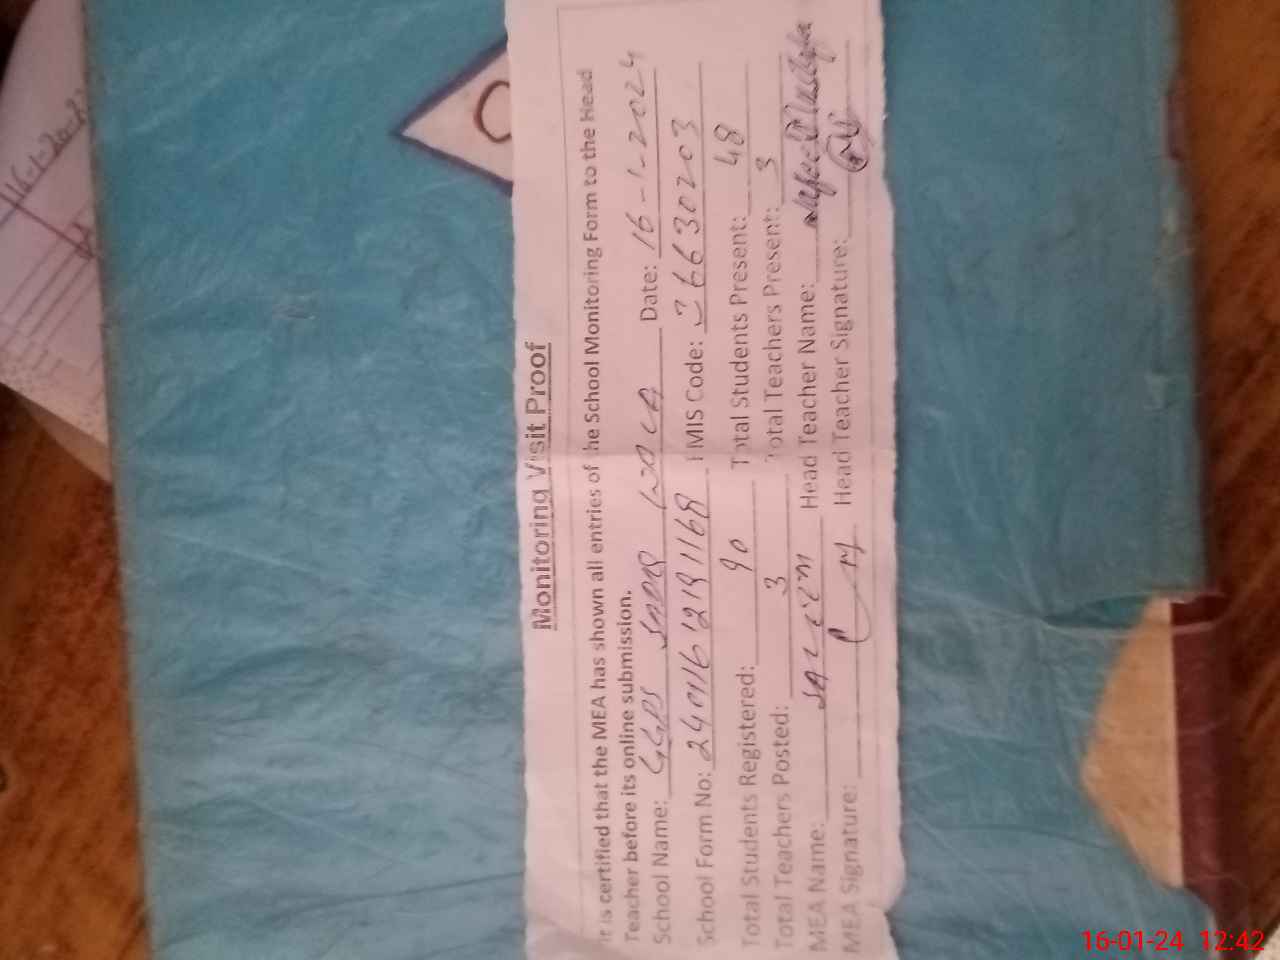 Monitoring Visit Proof
It is certified that the MEA has shown all entries of the School Monitoring Form to the Head
Teacher before its online submission.
School Name: GGPS Date: 16-1-2024
School Form No: EMIS Code: 36630203
Total Students Registered: 90 Total Students Present: 48
Total Teachers Posted: 3 Total Teachers Present: 3
MEA Name: Saleem Head Teacher Name:
MEA Signature: Head Teacher Signature:
16-01-24 12:42